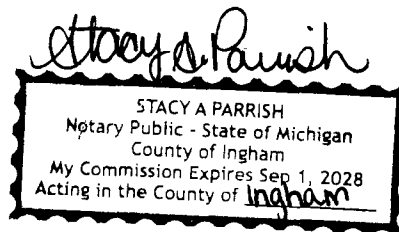 Stacy A Parrish
STACY A PARRISH
Notary Public - State of Michigan
County of Ingham
My Commission Expires Sep 1, 2028
Acting in the County of Ingham